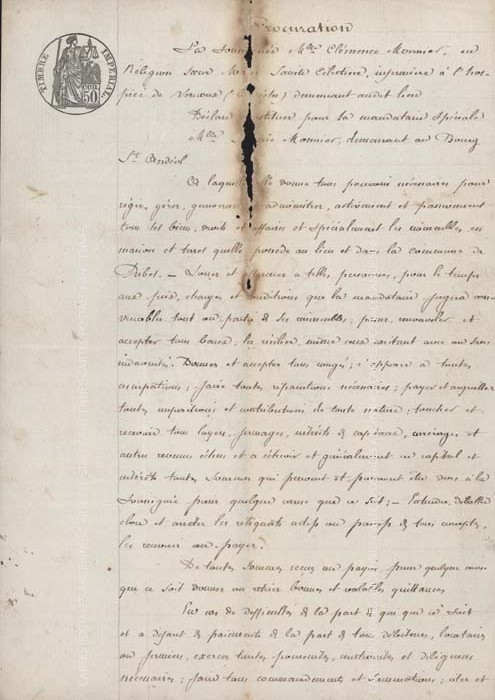 Procuration
TIMBRE IMPÉRIAL
50
La Mlle Clémence Monnier, en
Religion Sœur Sainte Célestine, infirmière à l'hos
pice de demeurant audit lieu
Déclare pour sa mandataire spéciale
Mlle Monnier, demeurant au Bourg
St Andéol
A laquelle elle donne tous pouvoirs nécessaires pour
régir, gérer, administrer, activement et passivement
tous ses biens, droits et affaires et spécialement les immeubles en
maison et terres qu'elle possède au lieu et dans la commune de
Ribes. — Louer et à telles personnes, pour le temps
aux prix, charges et conditions que la mandataire jugera con
venables tout ou partie de ses immeubles; passer, renouveler et
accepter tous baux; les résilier, même ceux existant avec ou sans
indemnités. Donner et accepter tous congés; s'opposer à toutes
usurpations; faire toutes réparations nécessaires; payer et acquitter
toutes impositions et contributions de toute nature; toucher et
recevoir tous loyers, fermages, intérêts de capitaux, arrérages et
autres revenus échus et à échoir et généralement en capital et
intérêts toutes sommes qui peuvent et pourront être dues à la
soussignée pour quelque cause que ce soit; — Entendre, débattre
clore et arrêter les reliquats actifs ou passifs de tous comptes,
les recevoir ou payer.
De toutes sommes reçues ou payées pour quelque cause
que ce soit donner ou retirer bonnes et valables quittances.
En cas de difficultés de la part de qui que ce soit
et à défaut de paiements de la part de tous débiteurs, locataires
ou fermiers, exercer toutes poursuites, contraintes et diligences
nécessaires; faire tous commandements et sommations; citer et